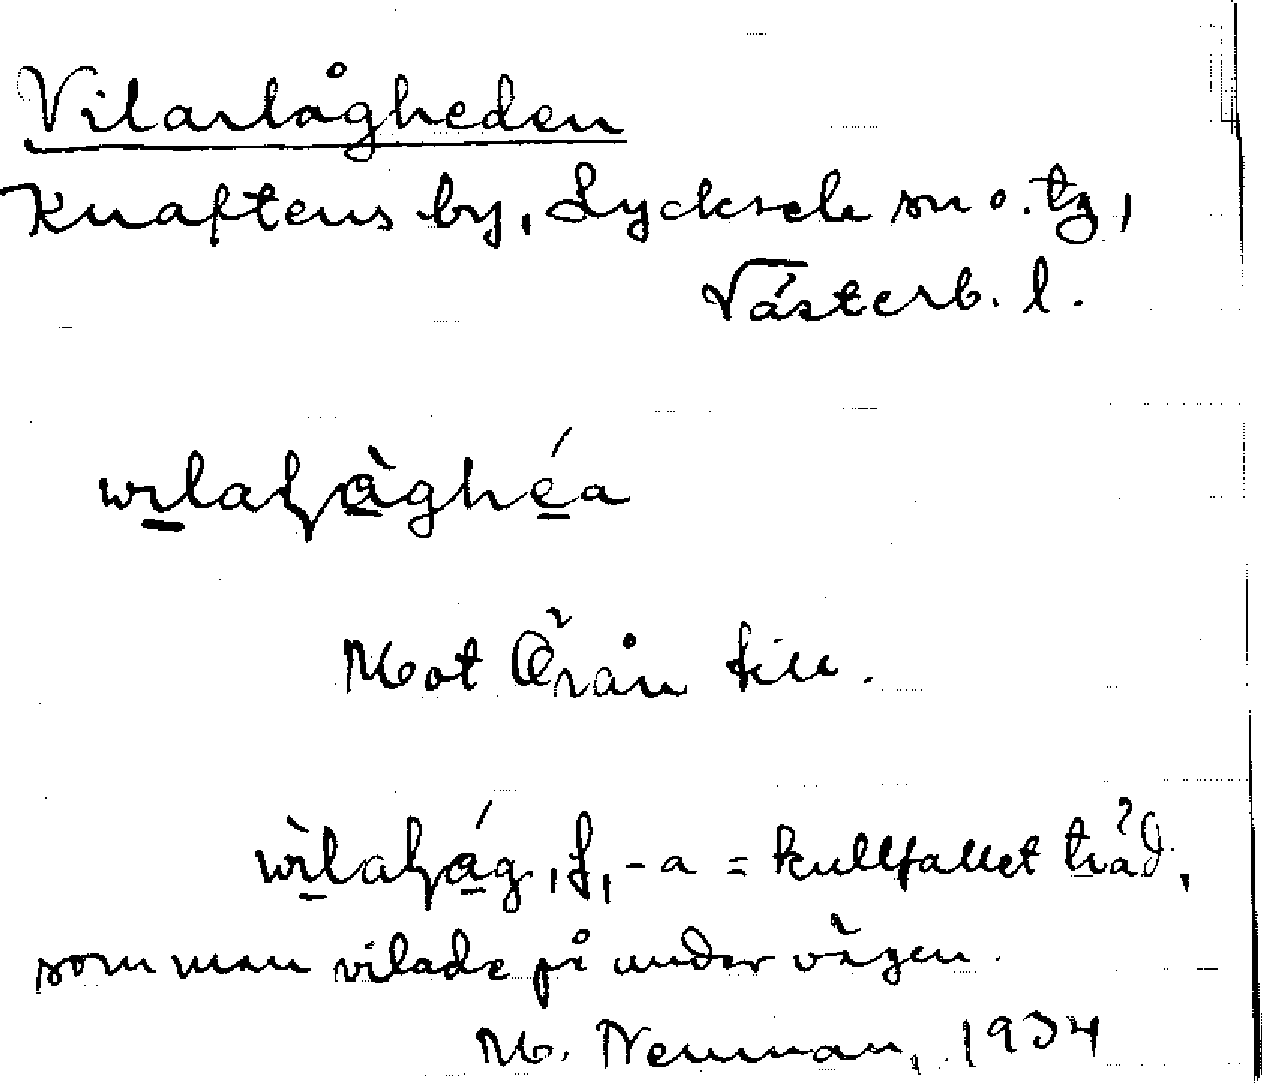 Vilarlågheden
Knaftens by, Lycksele sn o. tg,
Västerb. l.
Mot Örån till.
f, -a = kullfallet träd,
som man vilade på under vägen.
M. Neuman, 1934